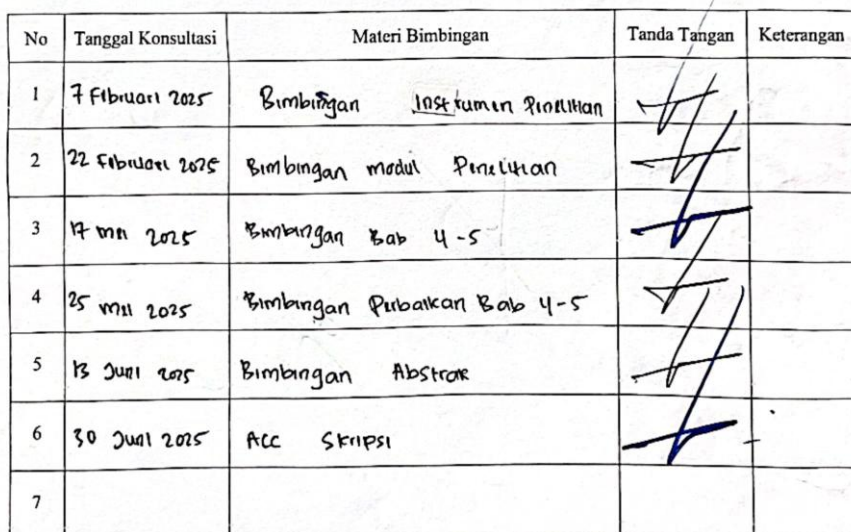 No Tanggal Konsultasi Materi Bimbingan Tanda Tangan Keterangan
1 7 Februari 2025 Bimbingan Instrumen Penelitian
2 22 Februari 2025 Bimbingan modul Penelitian
3 17 mei 2025 Bimbingan Bab 4-5
4 25 mei 2025 Bimbingan Perbaikan Bab 4-5
5 13 Juni 2025 Bimbingan Abstrak
6 30 Juni 2025 ACC Skripsi
7